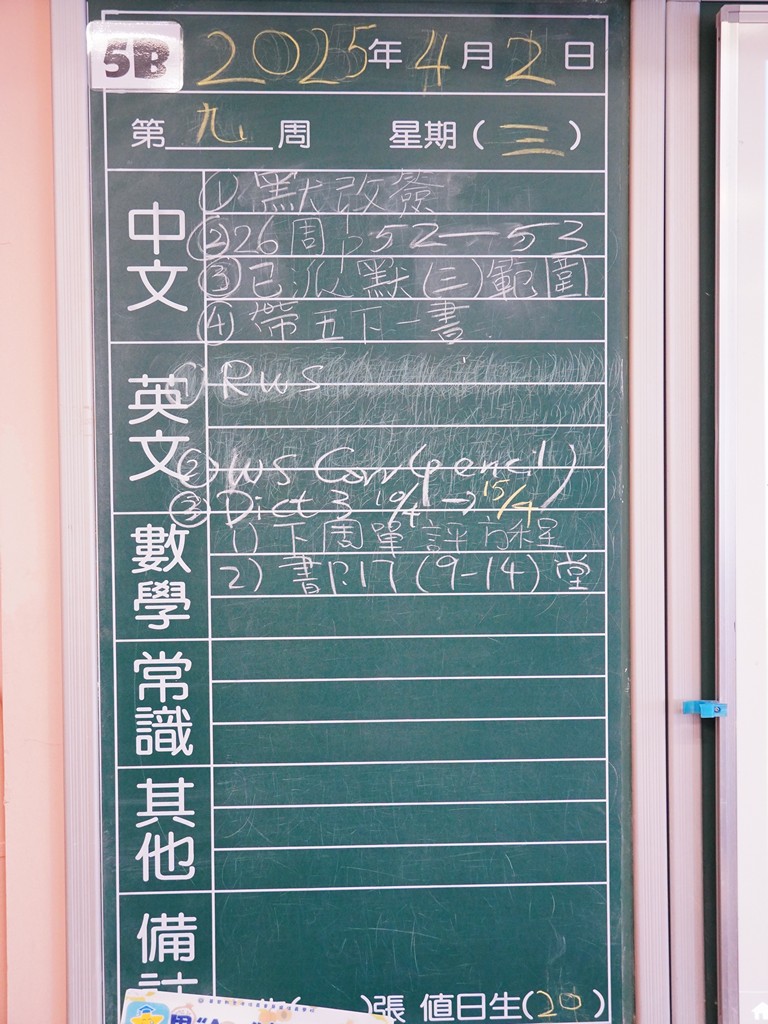 5B 2025年4月2日
第九周 星期(三)
中文
①默改簽
②26周p.52—53
③已派默(三)範圍
④帶五下一書
英文
① RWS
② WS Corr (pencil)
③ Dict 3 10/4 → 15/4
數學
1) 下周單評方程
2) 書P.17 (9-14) 堂
常識
其他
備註
張 值日生(20)